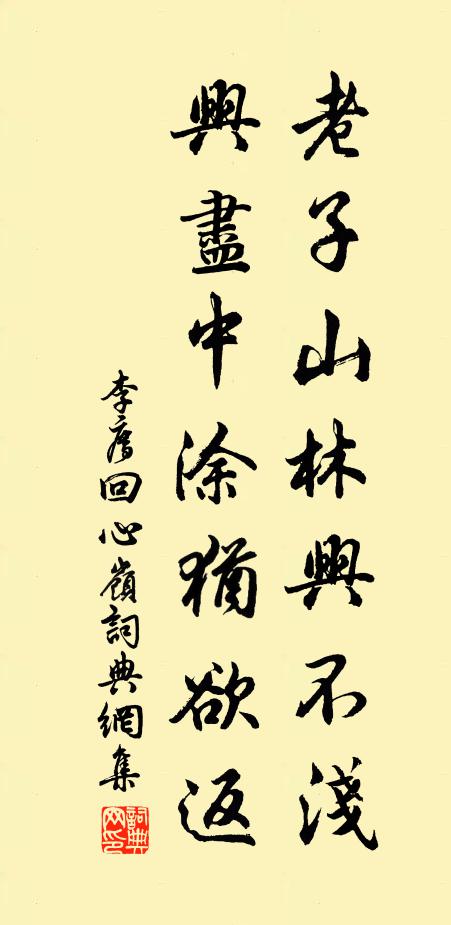 老子山林興不淺
興盡中涂猶欲返
李廌回心嶺詞典網集
詞典
网印